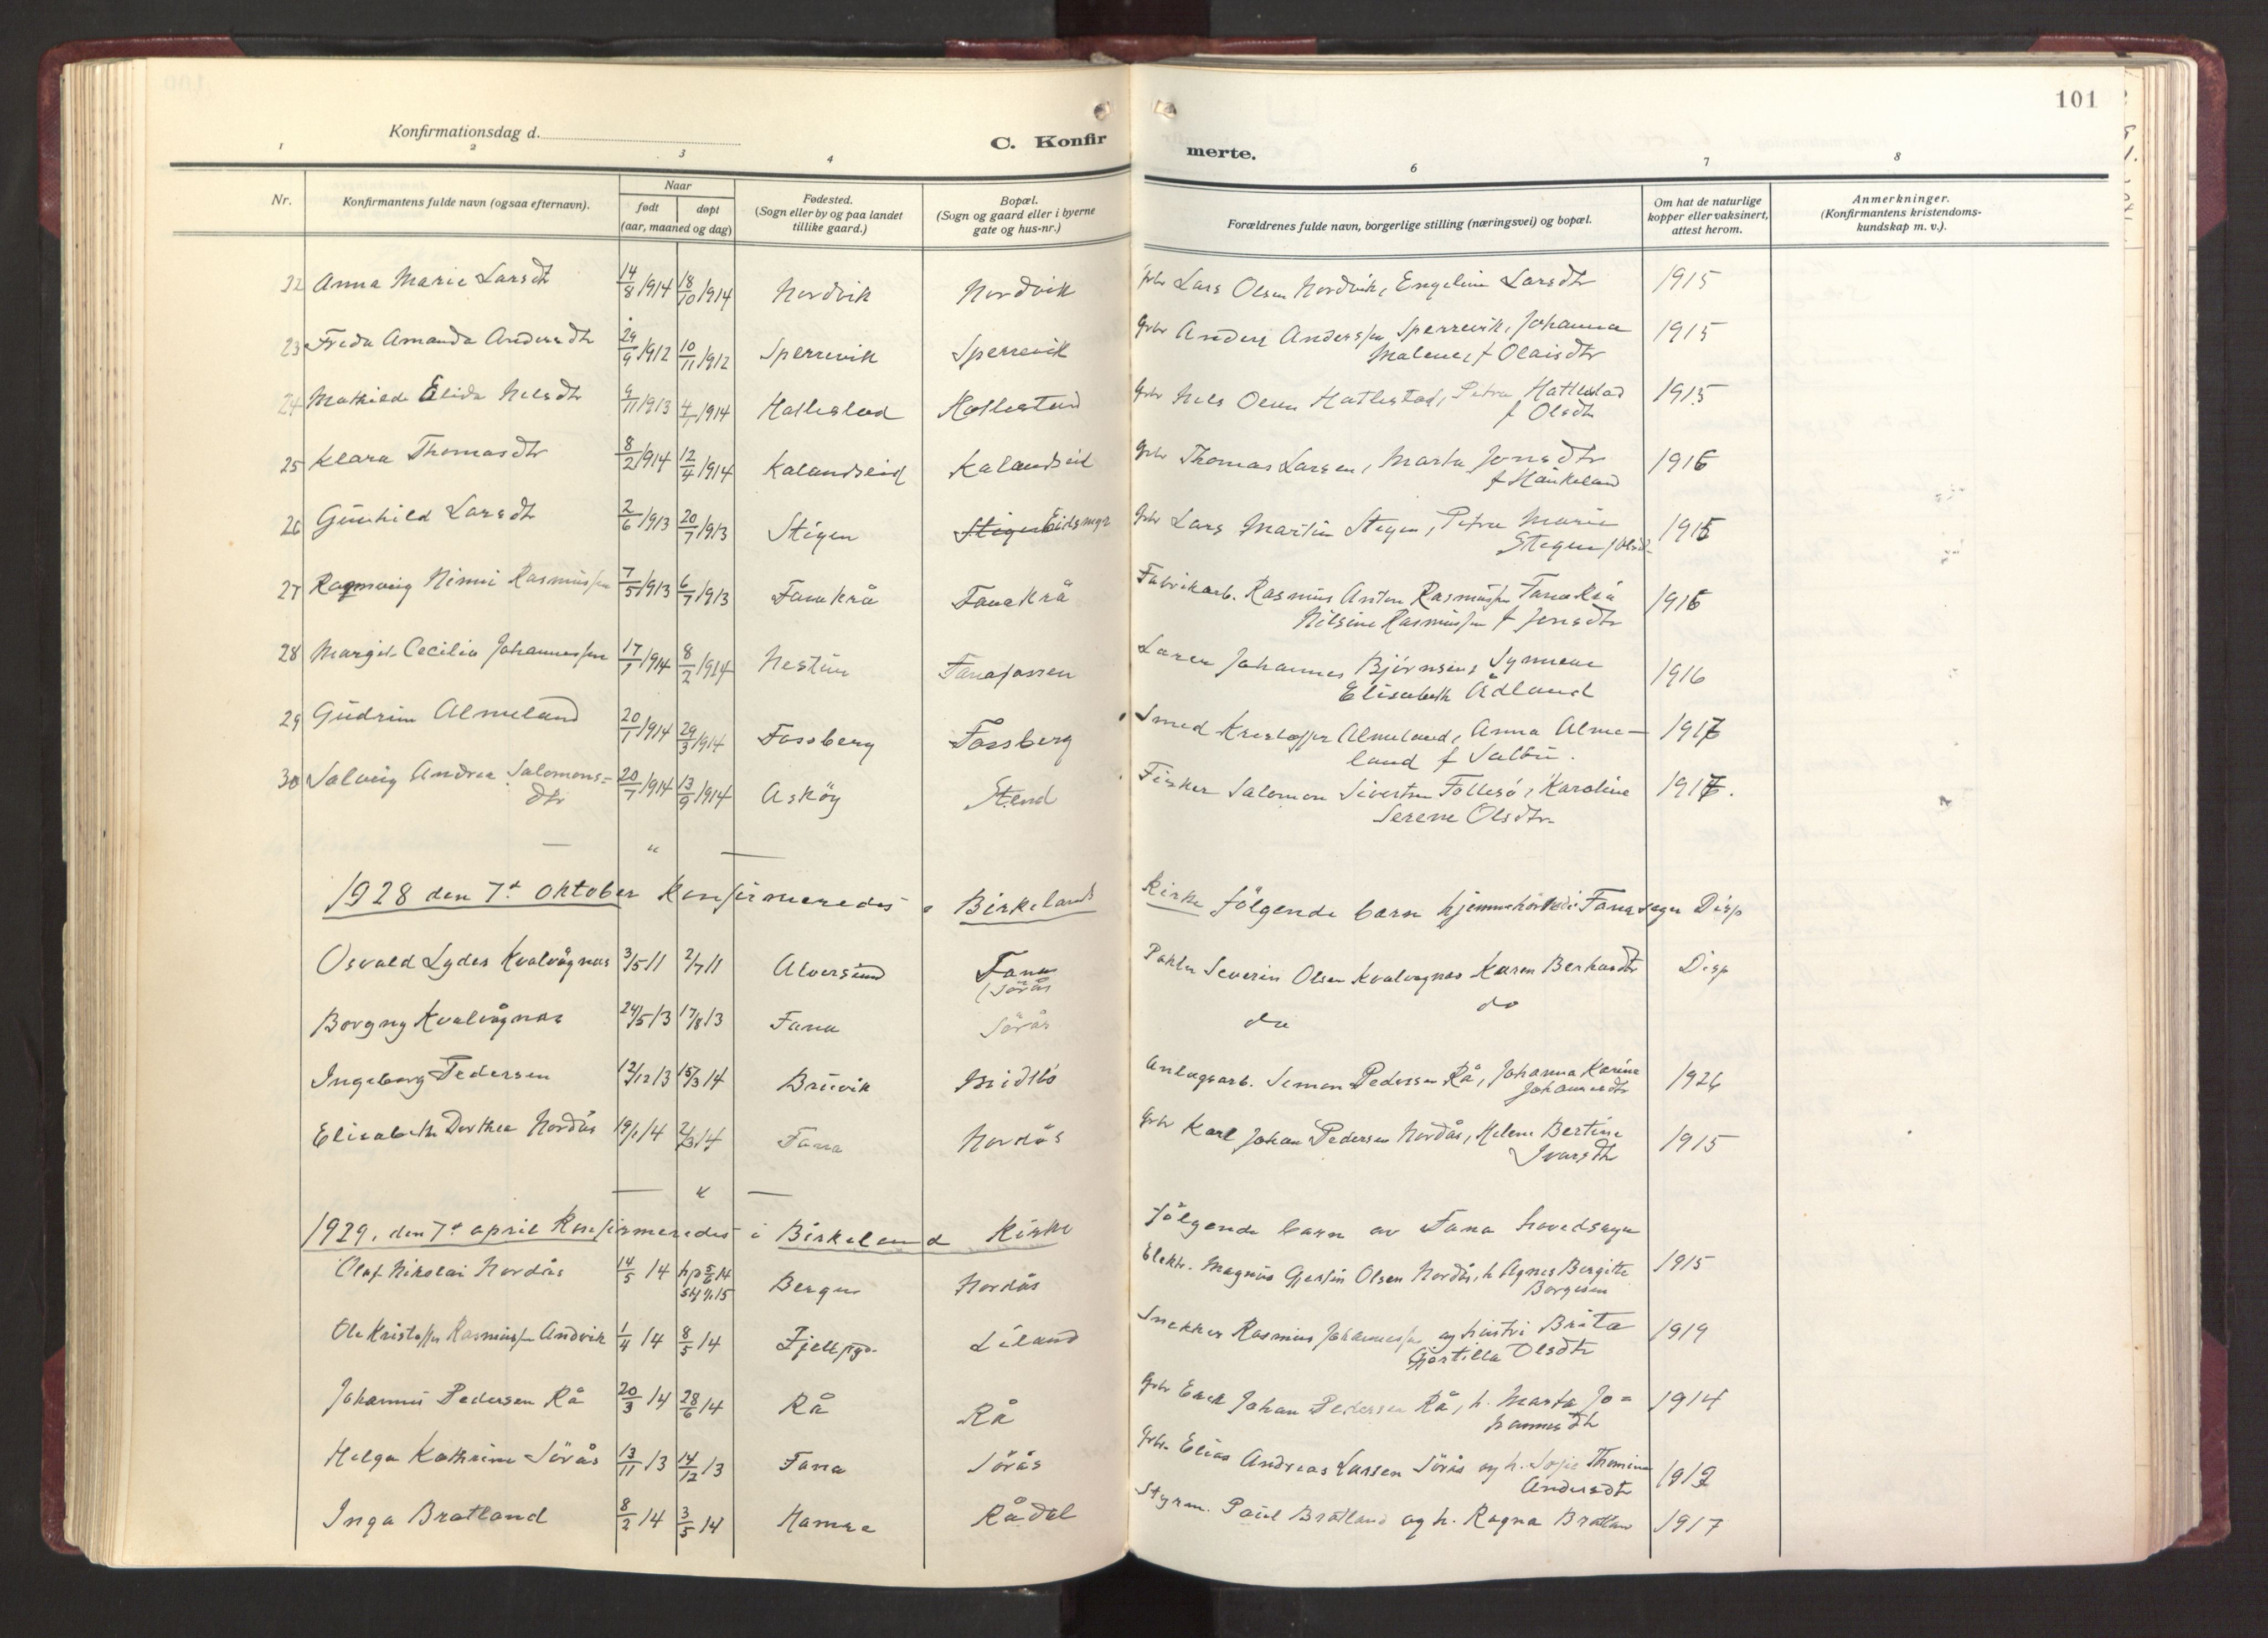 101
Konfirmationsdag d.
C. Konfirmerte.
1 2 3 4 6 7 8
Nr.
Konfirmantens fulde navn (ogsaa efternavn).
Naar
født døpt
(aar, maaned og dag)
Fødested.
(Sogn eller by og paa landet
tillike gaard.)
Bopæl.
(Sogn og gaard eller i byerne
gate og hus-nr.)
Forældrenes fulde navn, borgerlige stilling (næringsvei) og bopæl.
Om hat de naturlige
kopper eller vaksinert,
attest herom.
Anmerkninger.
(Konfirmantens kristendoms-
kundskap m. v.).
22 Anna Marie Larsdtr 14/8 1914 18/10 1914 Nordvik Nordvik Gbr Lars Olsen Nordvik, Engeline Larsdtr 1915
23 Freda Amanda Andersdtr 29/9 1912 10/11 1912 Sperrevik Sperrevik Gbr Anders Anderssen Sperrevik, Johanna 1915
Malene f Olaisdtr
24 Mathilde Elida Nilsdtr 9/11 1913 4/1 1914 Hatlestad Hatlestad Gbr Nils Olsen Hatlestad, Petra Hatlestad 1915
f Olsdtr
25 Klara Thomasdtr 8/2 1914 12/4 1914 Kalandseid Kalandseid Gbr Thomas Larsen, Marta Jonsdtr 1916
f Haukeland
26 Gunhild Larsdtr 2/6 1913 20/7 1913 Stigen Stigen Gbr Lars Martin Stegen, Petra Marie 1915
Stegen
27 Ragnvaig Ninni Rasmussen 7/5 1913 6/7 1913 Fanakrå Fanakrå Fabrikarb. Rasmus Anton Rasmussen Fanakrå 1916
Nilsine Rasmussen f Jensdtr
28 Margit Cecilia Johannessen 17/1 1914 8/2 1914 Nestun Fanafossen Lærer Johannes Bjørnsen, Synneve 1916
Elisabeth Ådland
29 Gudrun Almeland 20/1 1914 29/3 1914 Fossberg Fossberg Smed Kristoffer Almeland, Anna Alme- 1917
land f Salbu.
30 Salveig Andrea Salomons= 20/7 1914 13/9 1914 Askøy Stend Fisker Salomon Sivertsen Follesø, Karoline 1917.
dtr Serene Olsdtr
— " —
1928 den 7d oktober konfirmeredes i Birkeland Kirke følgende barn hjemmehørende i Fana sogn Disp
Osvald Lydes Kvalvågnes 3/5 11 2/7 11 Alversund Fana Pakker Severin Olsen Kvalvagnes Karen Berhardtr Disp
(Sørås
Borgny Kvalvågnes 24/5 13 17/8 13 Fana Sørås do do
Ingeborg Pedersen 12/12 13 15/3 14 Bruvik Anlægsarb. Simon Pedersen Rå, Johanna Karine 1926
Johannesdtr
Elisabeth Dorthea Nordås 19/1 14 2/3 14 Fana Nordås Gbr Karl Johan Pedersen Nordås, Helene Bertine 1915
Ivarsdtr
— " —
1929, den 7d april konfirmeredes i Birkeland Kirke følgende barn av Fana hovedsogn
Olaf Nikolai Nordås 14/5 14 hp 5/6 14 Bergen Nordås Elektr. Magnus Gjertin Olsen Nordås, h Agnes Bergitte 1915
Borgesen
Ole Kristoffer Rasmussen Andvik 1/4 14 8/5 14 Fjell pgd. Liland Snekker Rasmus Johannessen og hustri Brita 1919
Gjertilla Olsdtr
Johannes Pedersen Rå 20/3 14 28/6 14 Rå Rå Gbr Enek Johan Pedersen Rå, h. Marta Jo= 1914
hannesdtr
Helga Kathrine Sørås 13/11 13 14/12 13 Fana Sørås Gbr. Elias Andreas Larsen Sørås og h. Sofie Thomine 1919
Andersdtr
Inga Bratland 8/2 14 3/5 14 Hamre Rådal Styrm. Paul Bratland og h. Ragna Bratland 1917